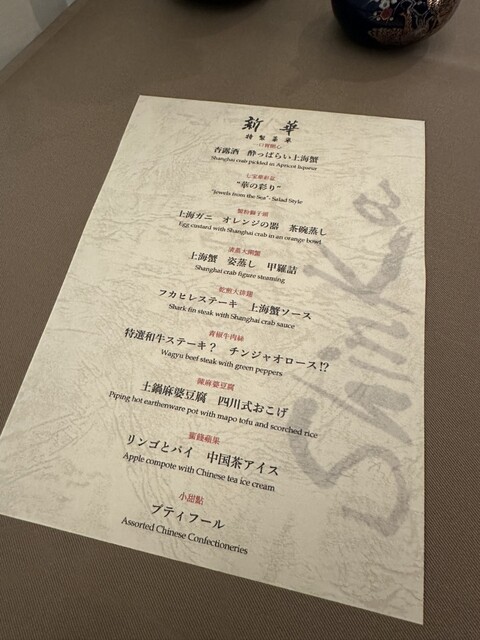 新華
特製菜単
一口前開心
杏露酒 酔っぱらい上海蟹
Shanghai crab pickled in Apricot liqueur
七宝華彩盆
"華の彩り"
"Jewels from the Sea"- Salad Style
蟹粉獅子頭
上海ガニ オレンジの器 茶碗蒸し
Egg custard with Shanghai crab in an orange bowl
清蒸大閘蟹
上海蟹 姿蒸し 甲羅詰
Shanghai crab figure steaming
フカヒレステーキ 上海蟹ソース
Shark fin steak with Shanghai crab sauce
青椒牛肉絲
特選和牛ステーキ? チンジャオロース!?
Wagyu beef steak with green peppers
陳麻婆豆腐
土鍋麻婆豆腐 四川式おこげ
Piping hot earthenware pot with mapo tofu and scorched rice
蜜餞蘋果
リンゴとパイ 中国茶アイス
Apple compote with Chinese tea ice cream
小甜點
プティフール
Assorted Chinese Confectioneries
Shinka